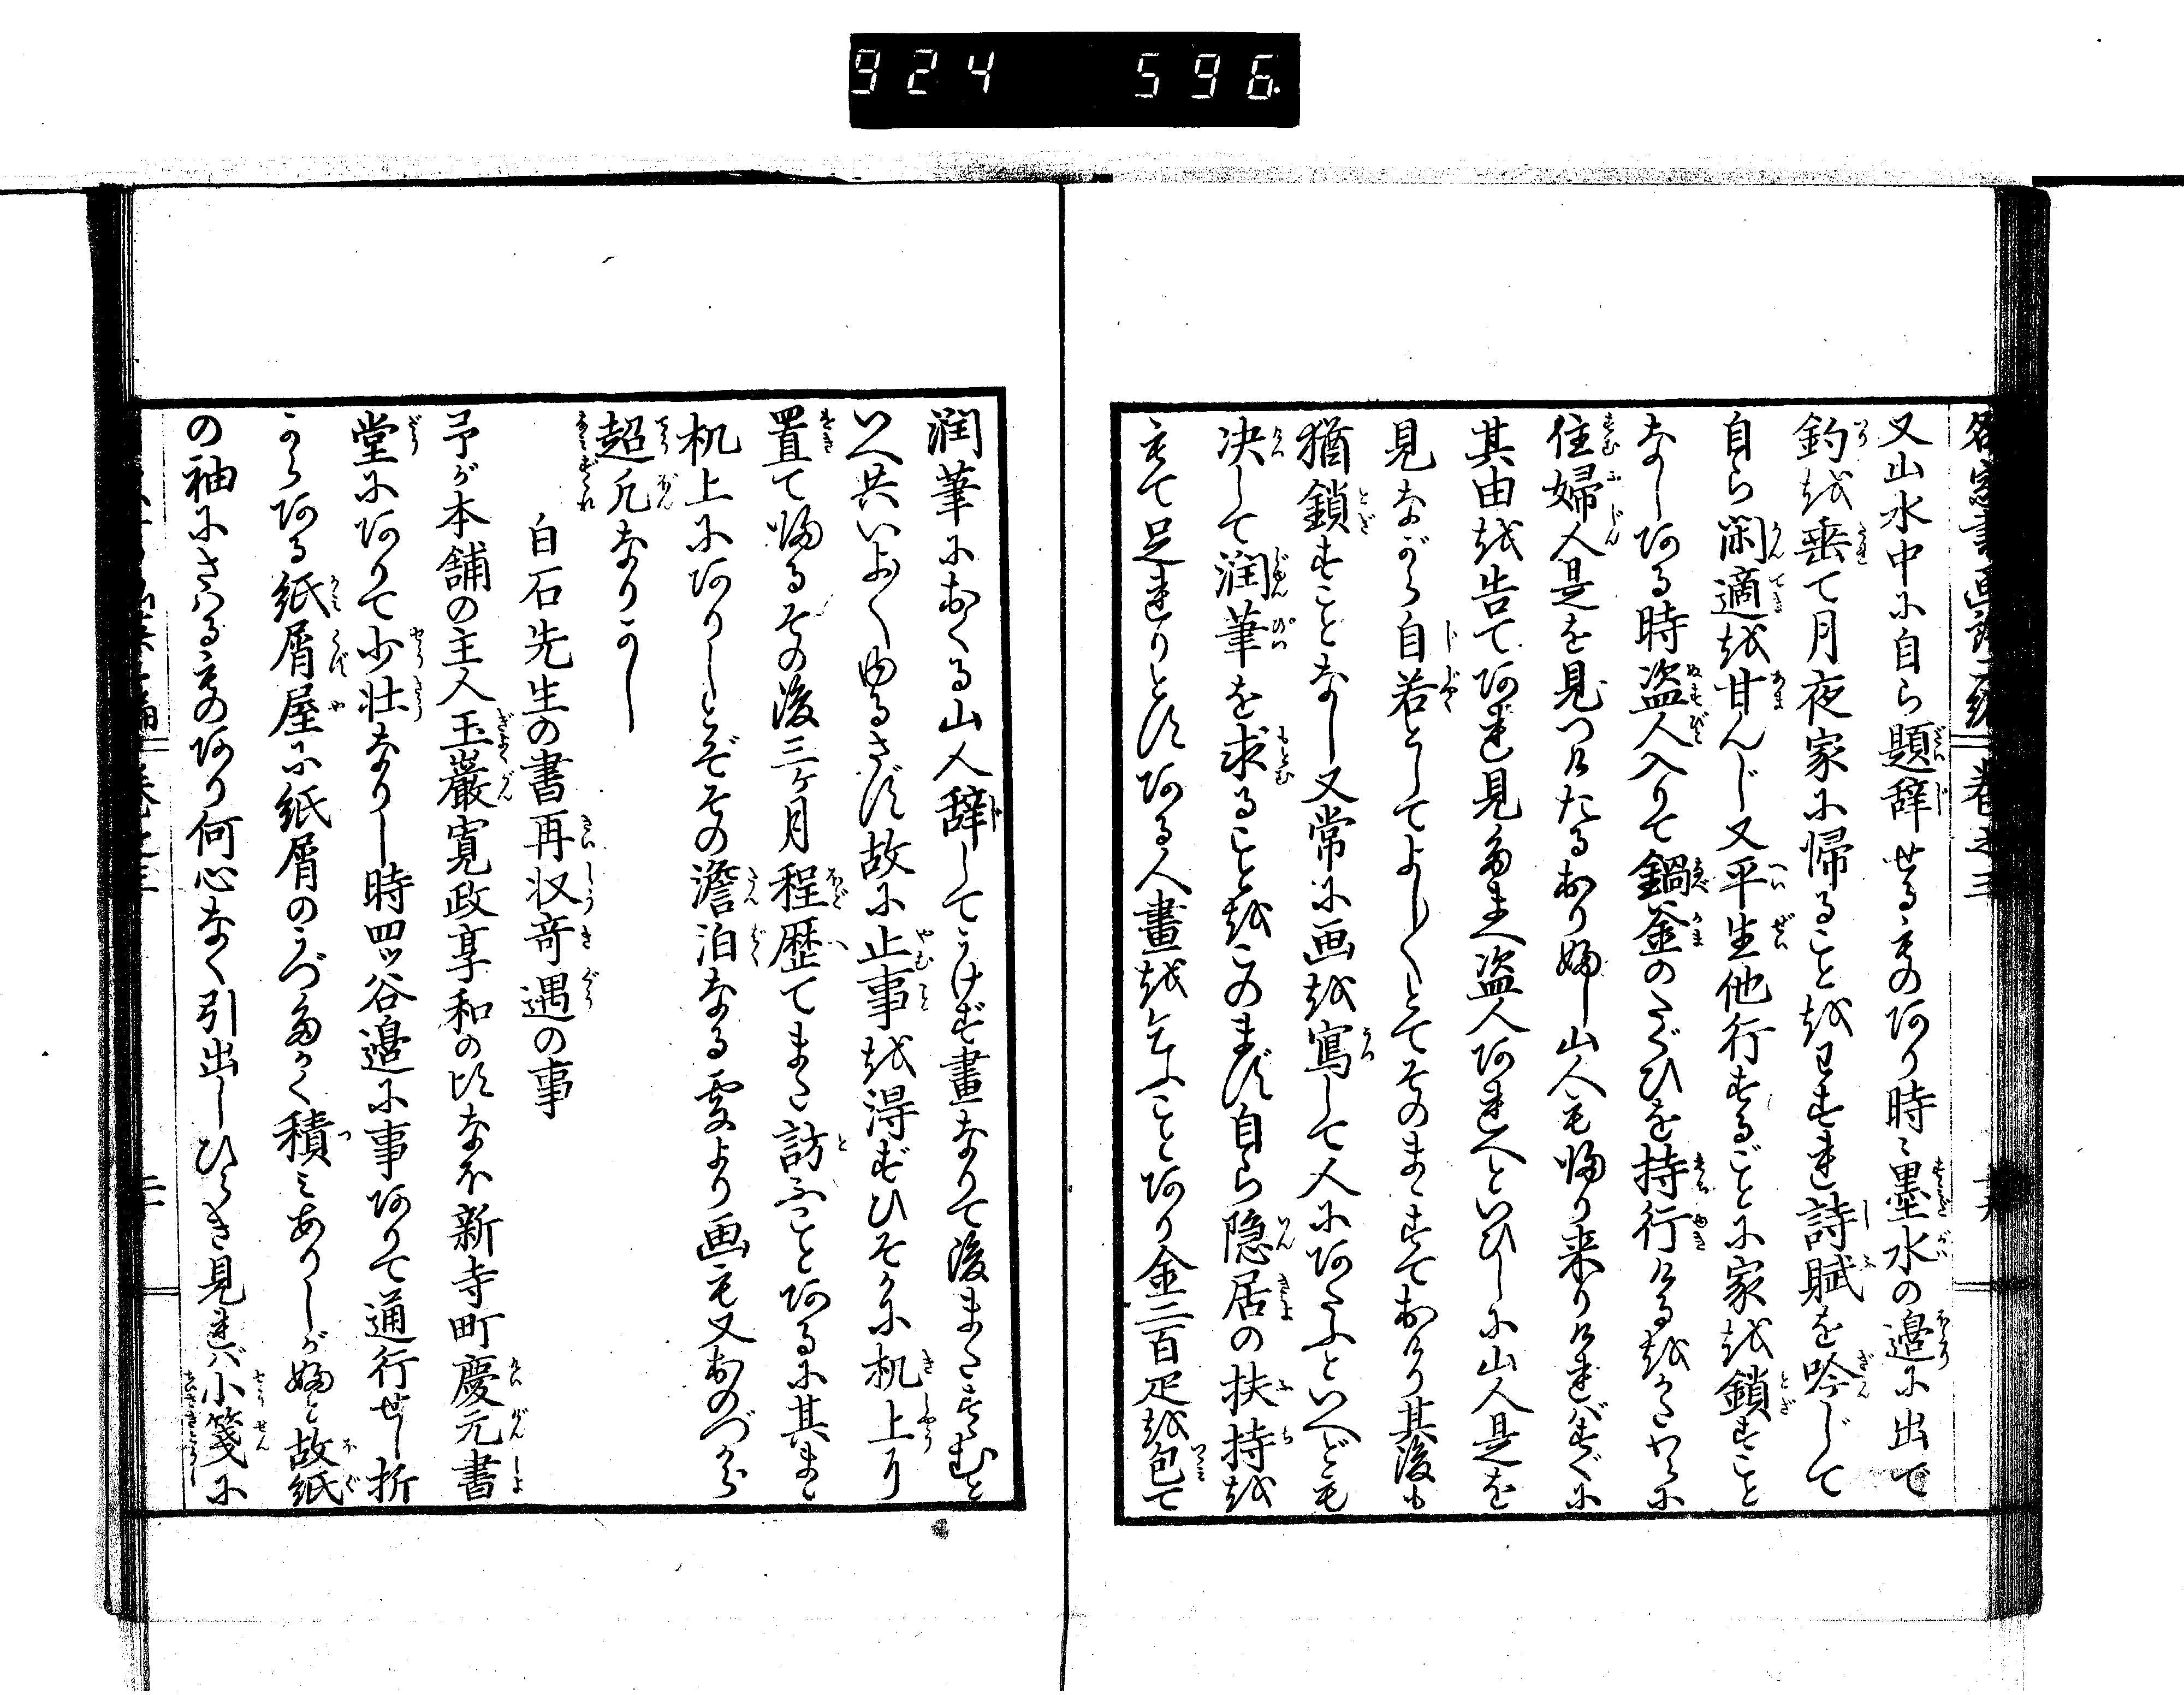 924 596
又山水中に自ら題辞せるものあり時々墨水の邉に出で
釣を垂て月夜家に帰ることをわすれ詩賦を吟じて
自ら閑適を甘んじ又平生他行するごとに家を鎖すこと
なしある時盗人入りて鍋釜のたぐひを持行けるをかたわらに
住婦人是を見つけたるおり婦し山人も帰り来りければすぐに
其由を告てあれ見たまへ盗人あれへといひしに山人是を
見ながら自若としてよし〳〵とてそのまゝすておけり其後も
猶鎖すことなし又常に画を寫して人にあたふといへども
决して潤筆を求ることをこのまず自ら隠居の扶持を
もて足れりとすある人畫を乞ふことあり金二百疋を包て
潤筆におくる山人辞してうけず畫なりて後またすゝむと
いへ共いよ〳〵ゆるさず故に止事を得ずひそかに机上り
置て帰るその後三ヶ月程歴てまた訪ふことあるに其まゝ
机上にありしとぞその澹泊なる処より画も又おのづから
超凡なりかし
白石先生の書再収竒遇の事
予が本舗の主人玉巖寛政享和の頃なほ新寺町慶元書
堂にありて少壮なりし時四ッ谷邉に事ありて通行せし折
から或る紙屑屋に紙屑のうづ高く積みありしが婦と故紙
の袖にさはるものあり何心なく引出しひらき見れバ小箋に